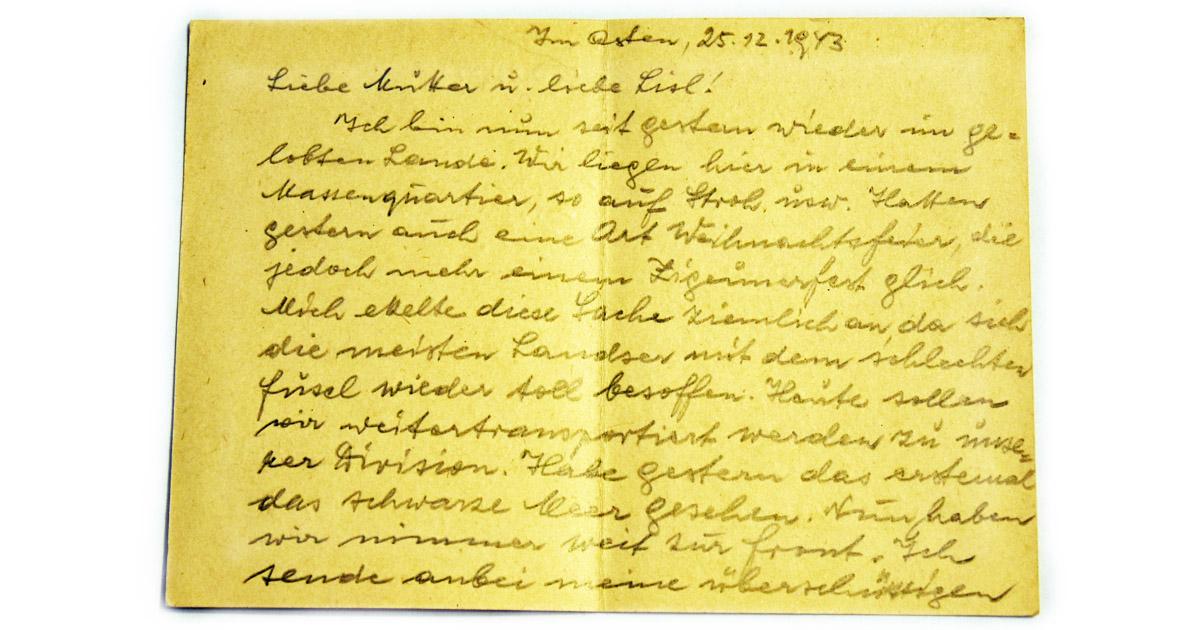 Im Osten, 25.12.1943
Liebe Mutter u. liebe Lisl!
Ich bin nun seit gestern wieder im ge=
lobten Lande. Wir liegen hier in einem
Massenquartier, so auf Stroh usw. Hatten
gestern auch eine Art Weihnachtsfeier, die
jedoch mehr einem Zigeunerfest glich.
Mich ekelte diese Sache ziemlich an da sich
die meisten Landser mit dem schlechten
Fusel wieder toll besoffen. Heute sollen
wir weitertransportiert werden zu unse
rer Division. Habe gestern das erstemal
das schwarze Meer gesehen. Nun haben
wir nimmer weit zur Front. Ich
sende anbei meine